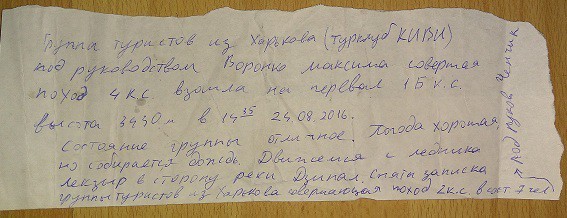 Группа туристов из Харькова (турклуб КИВИ)
под руководством Воронко Максима совершая
поход 4 к.с. взошла на перевал 1Б к.с.
высота 3490 м в 14 35 24.08.2016.
Состояние группы отличное. Погода хорошая,
но собирается дождь. Движемся с ледника
лекзыр в сторону реки Снята записка
группы туристов из Харькова совершающая поход 2 к.с. в сост. 7 чел
под руков